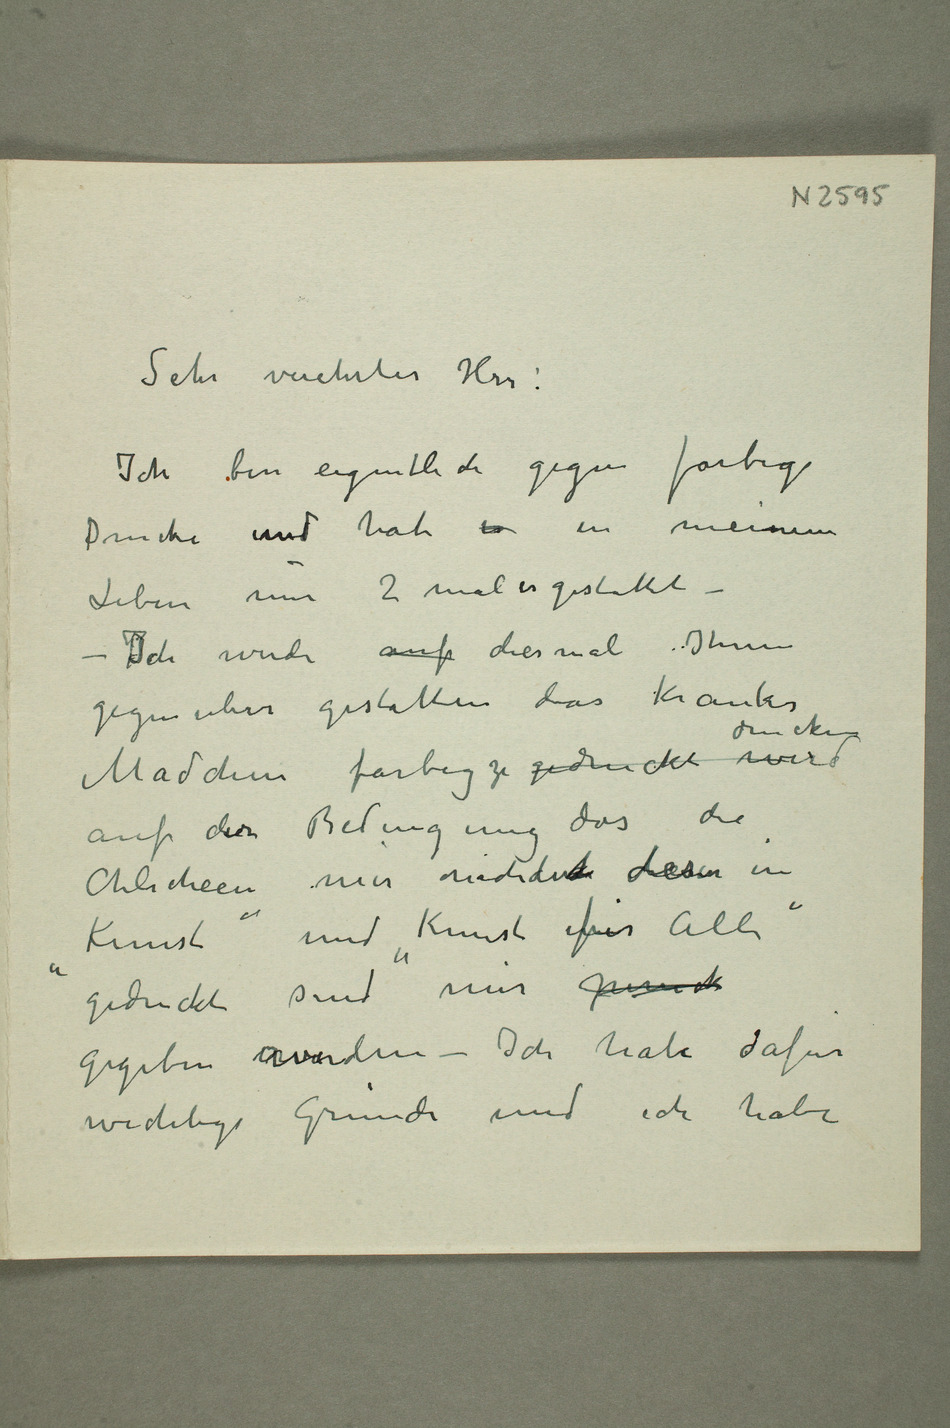 N 2595
Sehr verehrter Herr:
Ich bin eigentlich gegen farbige
Drucke und hab es in meinem
Leben nur 2 mal es gestattet –
– Ich werde auf diesmal Ihnen
gegenüber gestatten das Kranke
drucken
Mädchen farbig zu gedruckt wird
auf der Bedingung das die
Chlicheen mir nachdem diese in
Kunst" und „Kunst für Alle"
"gedruckt sind" mir zurück
gegeben werden – Ich habe dafür
wichtige Gründe und ich habe